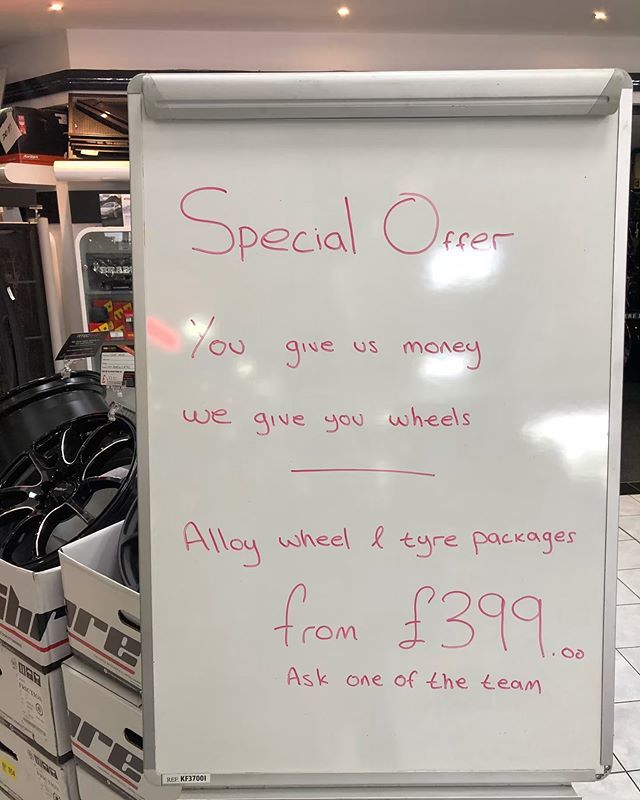 Special Offer
You give us money
we give you wheels
Alloy wheel & tyre packages
from £399.00
Ask one of the team
REF. KF37001